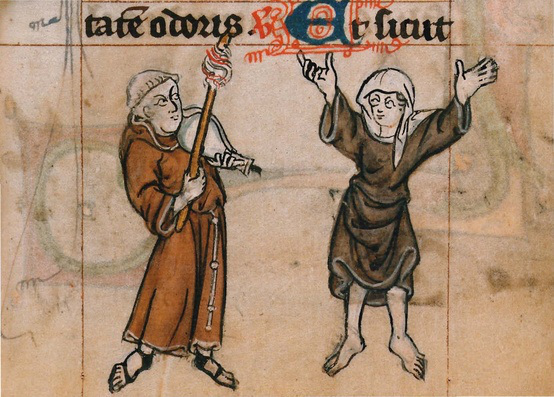 tatē odoris Et sicut